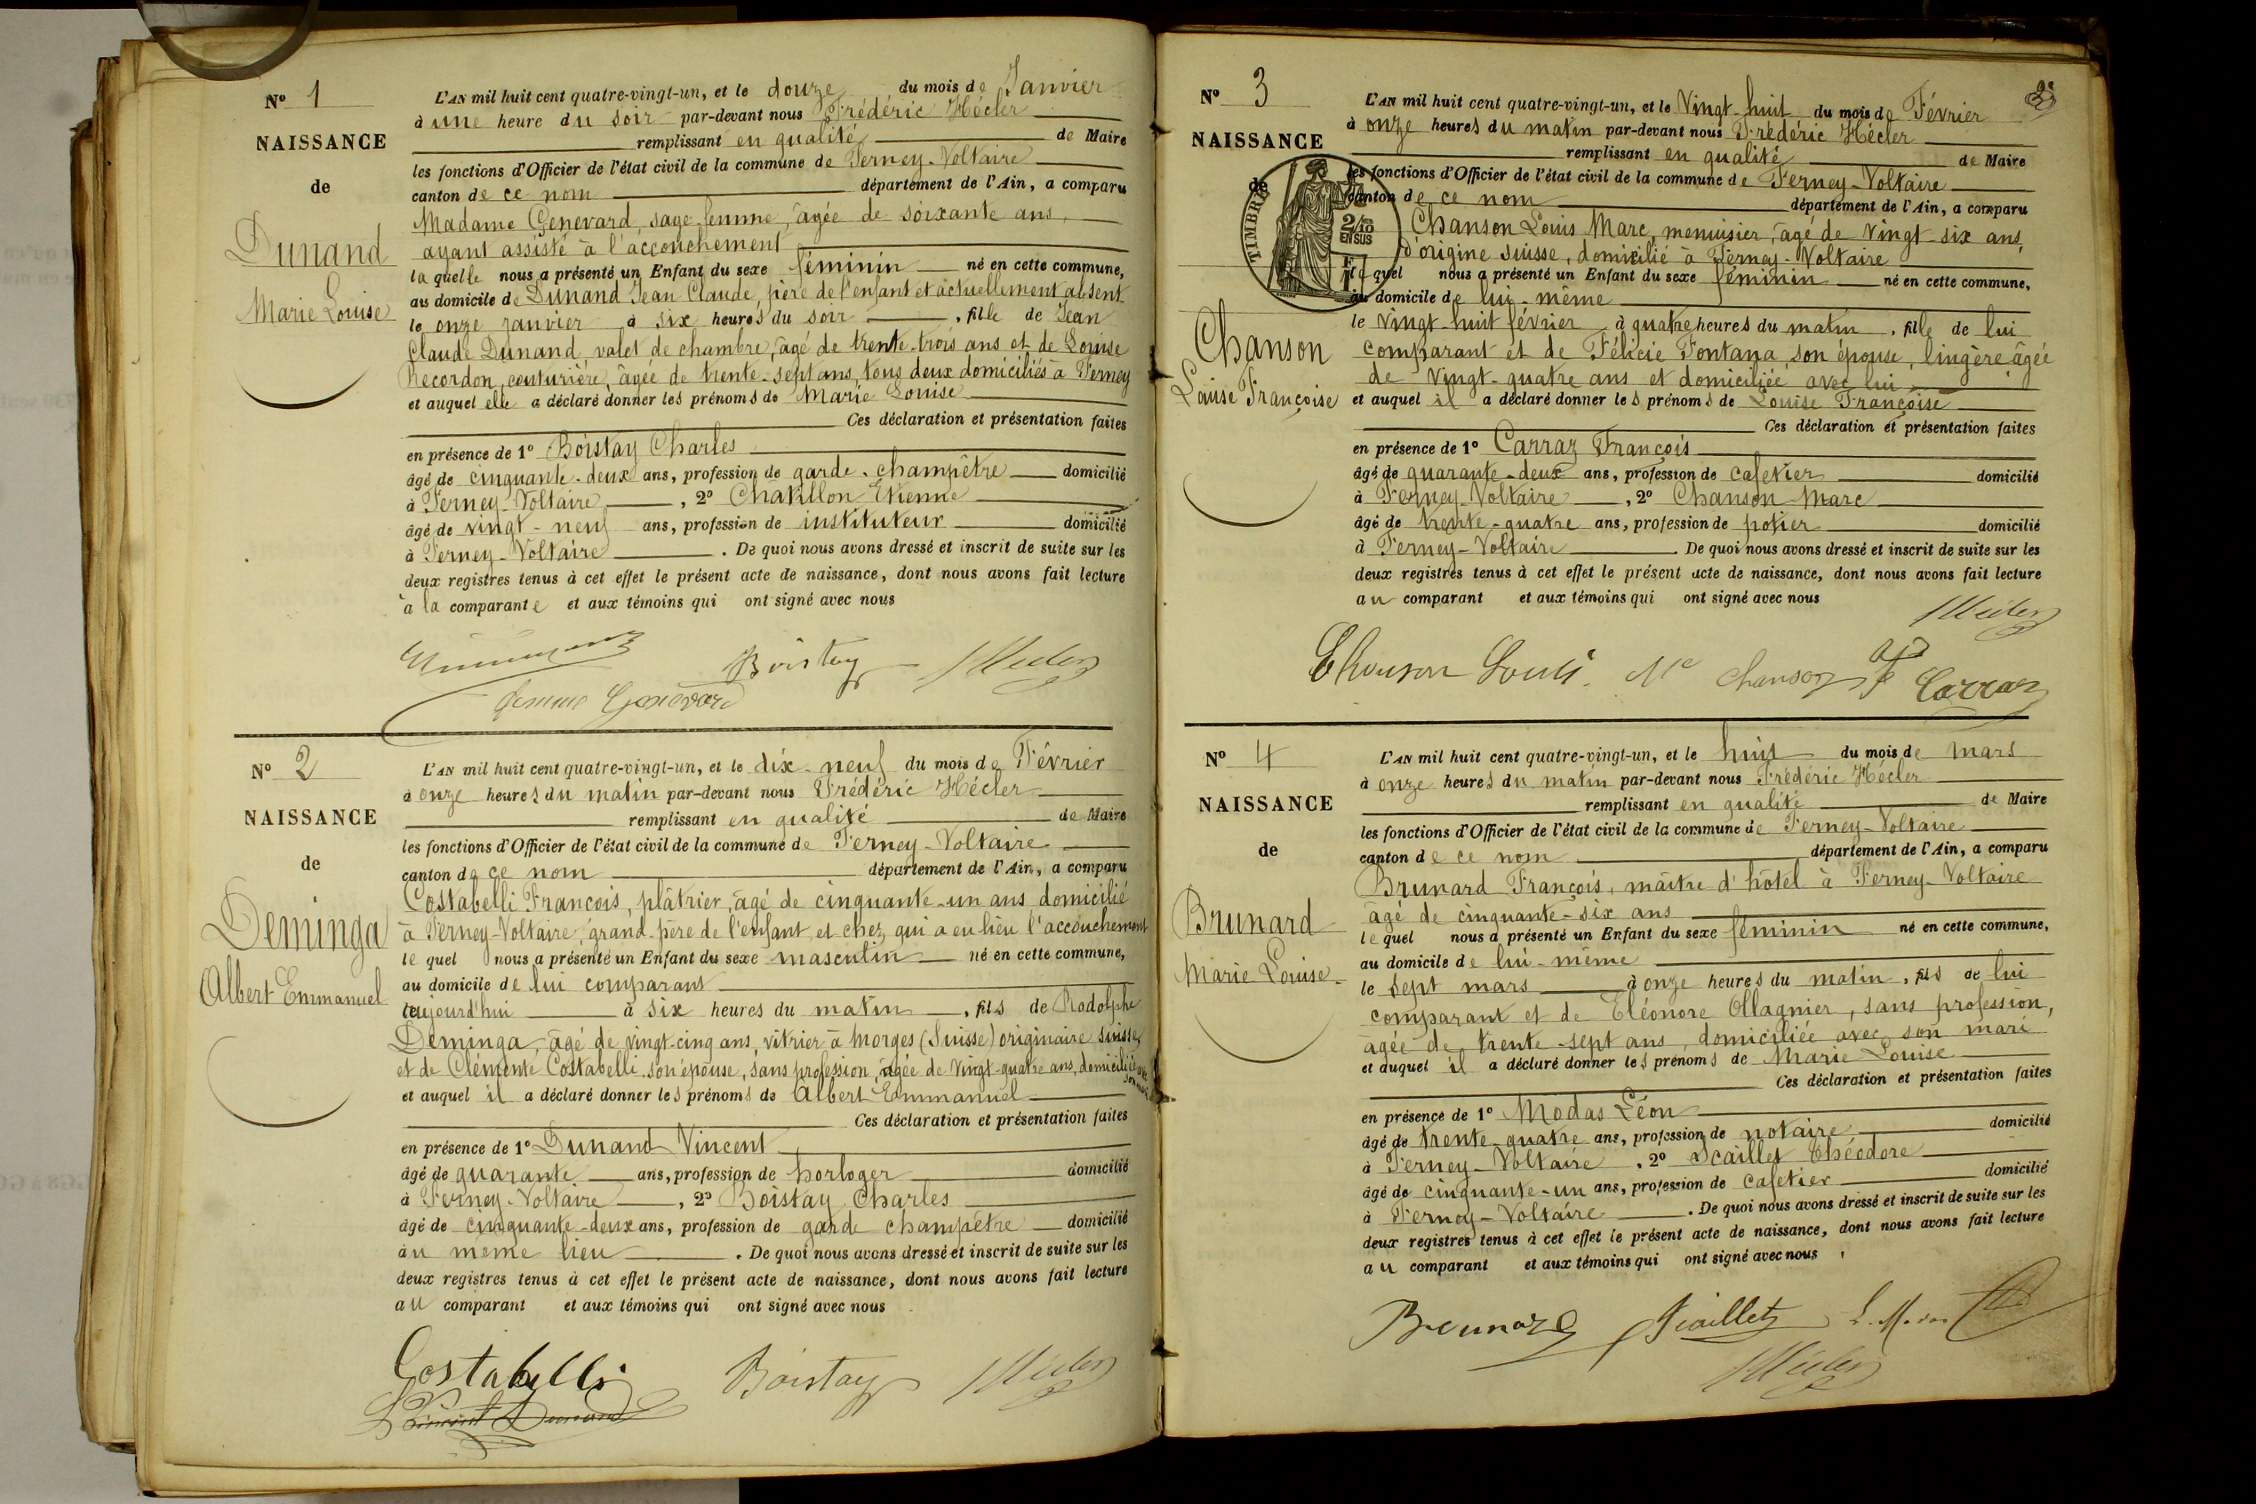 No 1
NAISSANCE
de
Dunand
Marie Louise
L'AN mil huit cent quatre-vingt-un, et le douze du mois de Janvier
à une heure du soir par-devant nous Frédéric Hécler
remplissant en qualité de Maire
les fonctions d'Officier de l'état civil de la commune de Ferney-Voltaire
canton de ce nom département de l'Ain, a comparu
Madame Genevard, sage femme, âgée de soixante ans,
ayant assisté à l'accouchement
la quelle nous a présenté un Enfant du sexe féminin né en cette commune,
au domicile de Dunand Jean Claude, père de l'enfant et actuellement absent
le onze janvier à six heures du soir, fille de Jean
Claude Dunand, valet de chambre, âgé de trente-trois ans et de Louise
Recordon, couturière, âgée de trente-sept ans, tous deux domiciliés à Ferney
et auquel elle a déclaré donner les prénoms de Marie Louise
Ces déclaration et présentation faites
en présence de 1° Boistay Charles
âgé de cinquante-deux ans, profession de garde-champêtre domicilié
à Ferney-Voltaire, 2° Chatillon Etienne
âgé de vingt-neuf ans, profession de instituteur domicilié
à Ferney-Voltaire. De quoi nous avons dressé et inscrit de suite sur les
deux registres tenus à cet effet le présent acte de naissance, dont nous avons fait lecture
à la comparante et aux témoins qui ont signé avec nous
Boistay Hécler
femme Genevard
No 2
NAISSANCE
de
Deminga
Albert Emmanuel
L'AN mil huit cent quatre-vingt-un, et le dix-neuf du mois de Février
à onze heures du matin par-devant nous Frédéric Hécler
remplissant en qualité de Maire
les fonctions d'Officier de l'état civil de la commune de Ferney-Voltaire
canton de ce nom département de l'Ain, a comparu
Costabelli François, plâtrier, âgé de cinquante-un ans domicilié
à Ferney-Voltaire, grand-père de l'enfant et chez qui a eu lieu l'accouchement
le quel nous a présenté un Enfant du sexe masculin né en cette commune,
au domicile de lui comparant
aujourd'hui à six heures du matin, fils de Rodolphe
Deminga, âgé de vingt-cinq ans, vitrier à Morges (Suisse) originaire suisse,
et de Clémente Costabelli, son épouse, sans profession, âgée de vingt-quatre ans, domiciliée avec son mari
et auquel il a déclaré donner les prénoms de Albert Emmanuel
Ces déclaration et présentation faites
en présence de 1° Dunand Vincent
âgé de quarante ans, profession de horloger domicilié
à Ferney-Voltaire, 2° Boistay Charles
âgé de cinquante-deux ans, profession de garde champêtre domicilié
au même lieu. De quoi nous avons dressé et inscrit de suite sur les
deux registres tenus à cet effet le présent acte de naissance, dont nous avons fait lecture
au comparant et aux témoins qui ont signé avec nous
Costabelli Boistay Hécler
Vincent Dunand
No 3
NAISSANCE
de
Chanson
Louise Françoise
TIMBRE
2/10
EN SUS
L'AN mil huit cent quatre-vingt-un, et le Vingt-huit du mois de Février
à onze heures du matin par-devant nous Frédéric Hécler
remplissant en qualité de Maire
les fonctions d'Officier de l'état civil de la commune de Ferney-Voltaire
canton de ce nom département de l'Ain, a comparu
Chanson Louis Marc, menuisier, âgé de vingt-six ans,
d'origine suisse, domicilié à Ferney-Voltaire
le quel nous a présenté un Enfant du sexe féminin né en cette commune,
au domicile de lui-même
le vingt-huit février à quatre heures du matin, fille de lui
comparant et de Félicie Fontana, son épouse, lingère âgée
de vingt-quatre ans et domiciliée avec lui
et auquel il a déclaré donner les prénoms de Louise Françoise
Ces déclaration et présentation faites
en présence de 1° Carraz François
âgé de quarante-deux ans, profession de cafetier domicilié
à Ferney-Voltaire, 2° Chanson Marc
âgé de trente-quatre ans, profession de potier domicilié
à Ferney-Voltaire. De quoi nous avons dressé et inscrit de suite sur les
deux registres tenus à cet effet le présent acte de naissance, dont nous avons fait lecture
au comparant et aux témoins qui ont signé avec nous
Hécler
Chanson Louis. Mc Chanson Carraz
No 4
NAISSANCE
de
Brunard
Marie Louise
L'AN mil huit cent quatre-vingt-un, et le huit du mois de mars
à onze heures du matin par-devant nous Frédéric Hécler
remplissant en qualité de Maire
les fonctions d'Officier de l'état civil de la commune de Ferney-Voltaire
canton de ce nom département de l'Ain, a comparu
Brunard François, maître d'hôtel à Ferney-Voltaire
âgé de cinquante-six ans
le quel nous a présenté un Enfant du sexe féminin né en cette commune,
au domicile de lui-même
le sept mars à onze heures du matin, fils de lui
comparant et de Eléonore Ollagnier, sans profession,
âgée de trente-sept ans, domiciliée avec son mari
et auquel il a déclaré donner les prénoms de Marie Louise
Ces déclaration et présentation faites
en présence de 1° Modas Léon
âgé de trente-quatre ans, profession de notaire domicilié
à Ferney-Voltaire, 2° Scaillet Théodore
âgé de cinquante-un ans, profession de cafetier domicilié
à Ferney-Voltaire. De quoi nous avons dressé et inscrit de suite sur les
deux registres tenus à cet effet le présent acte de naissance, dont nous avons fait lecture
au comparant et aux témoins qui ont signé avec nous
Brunard Scaillet L. Modas
Hécler